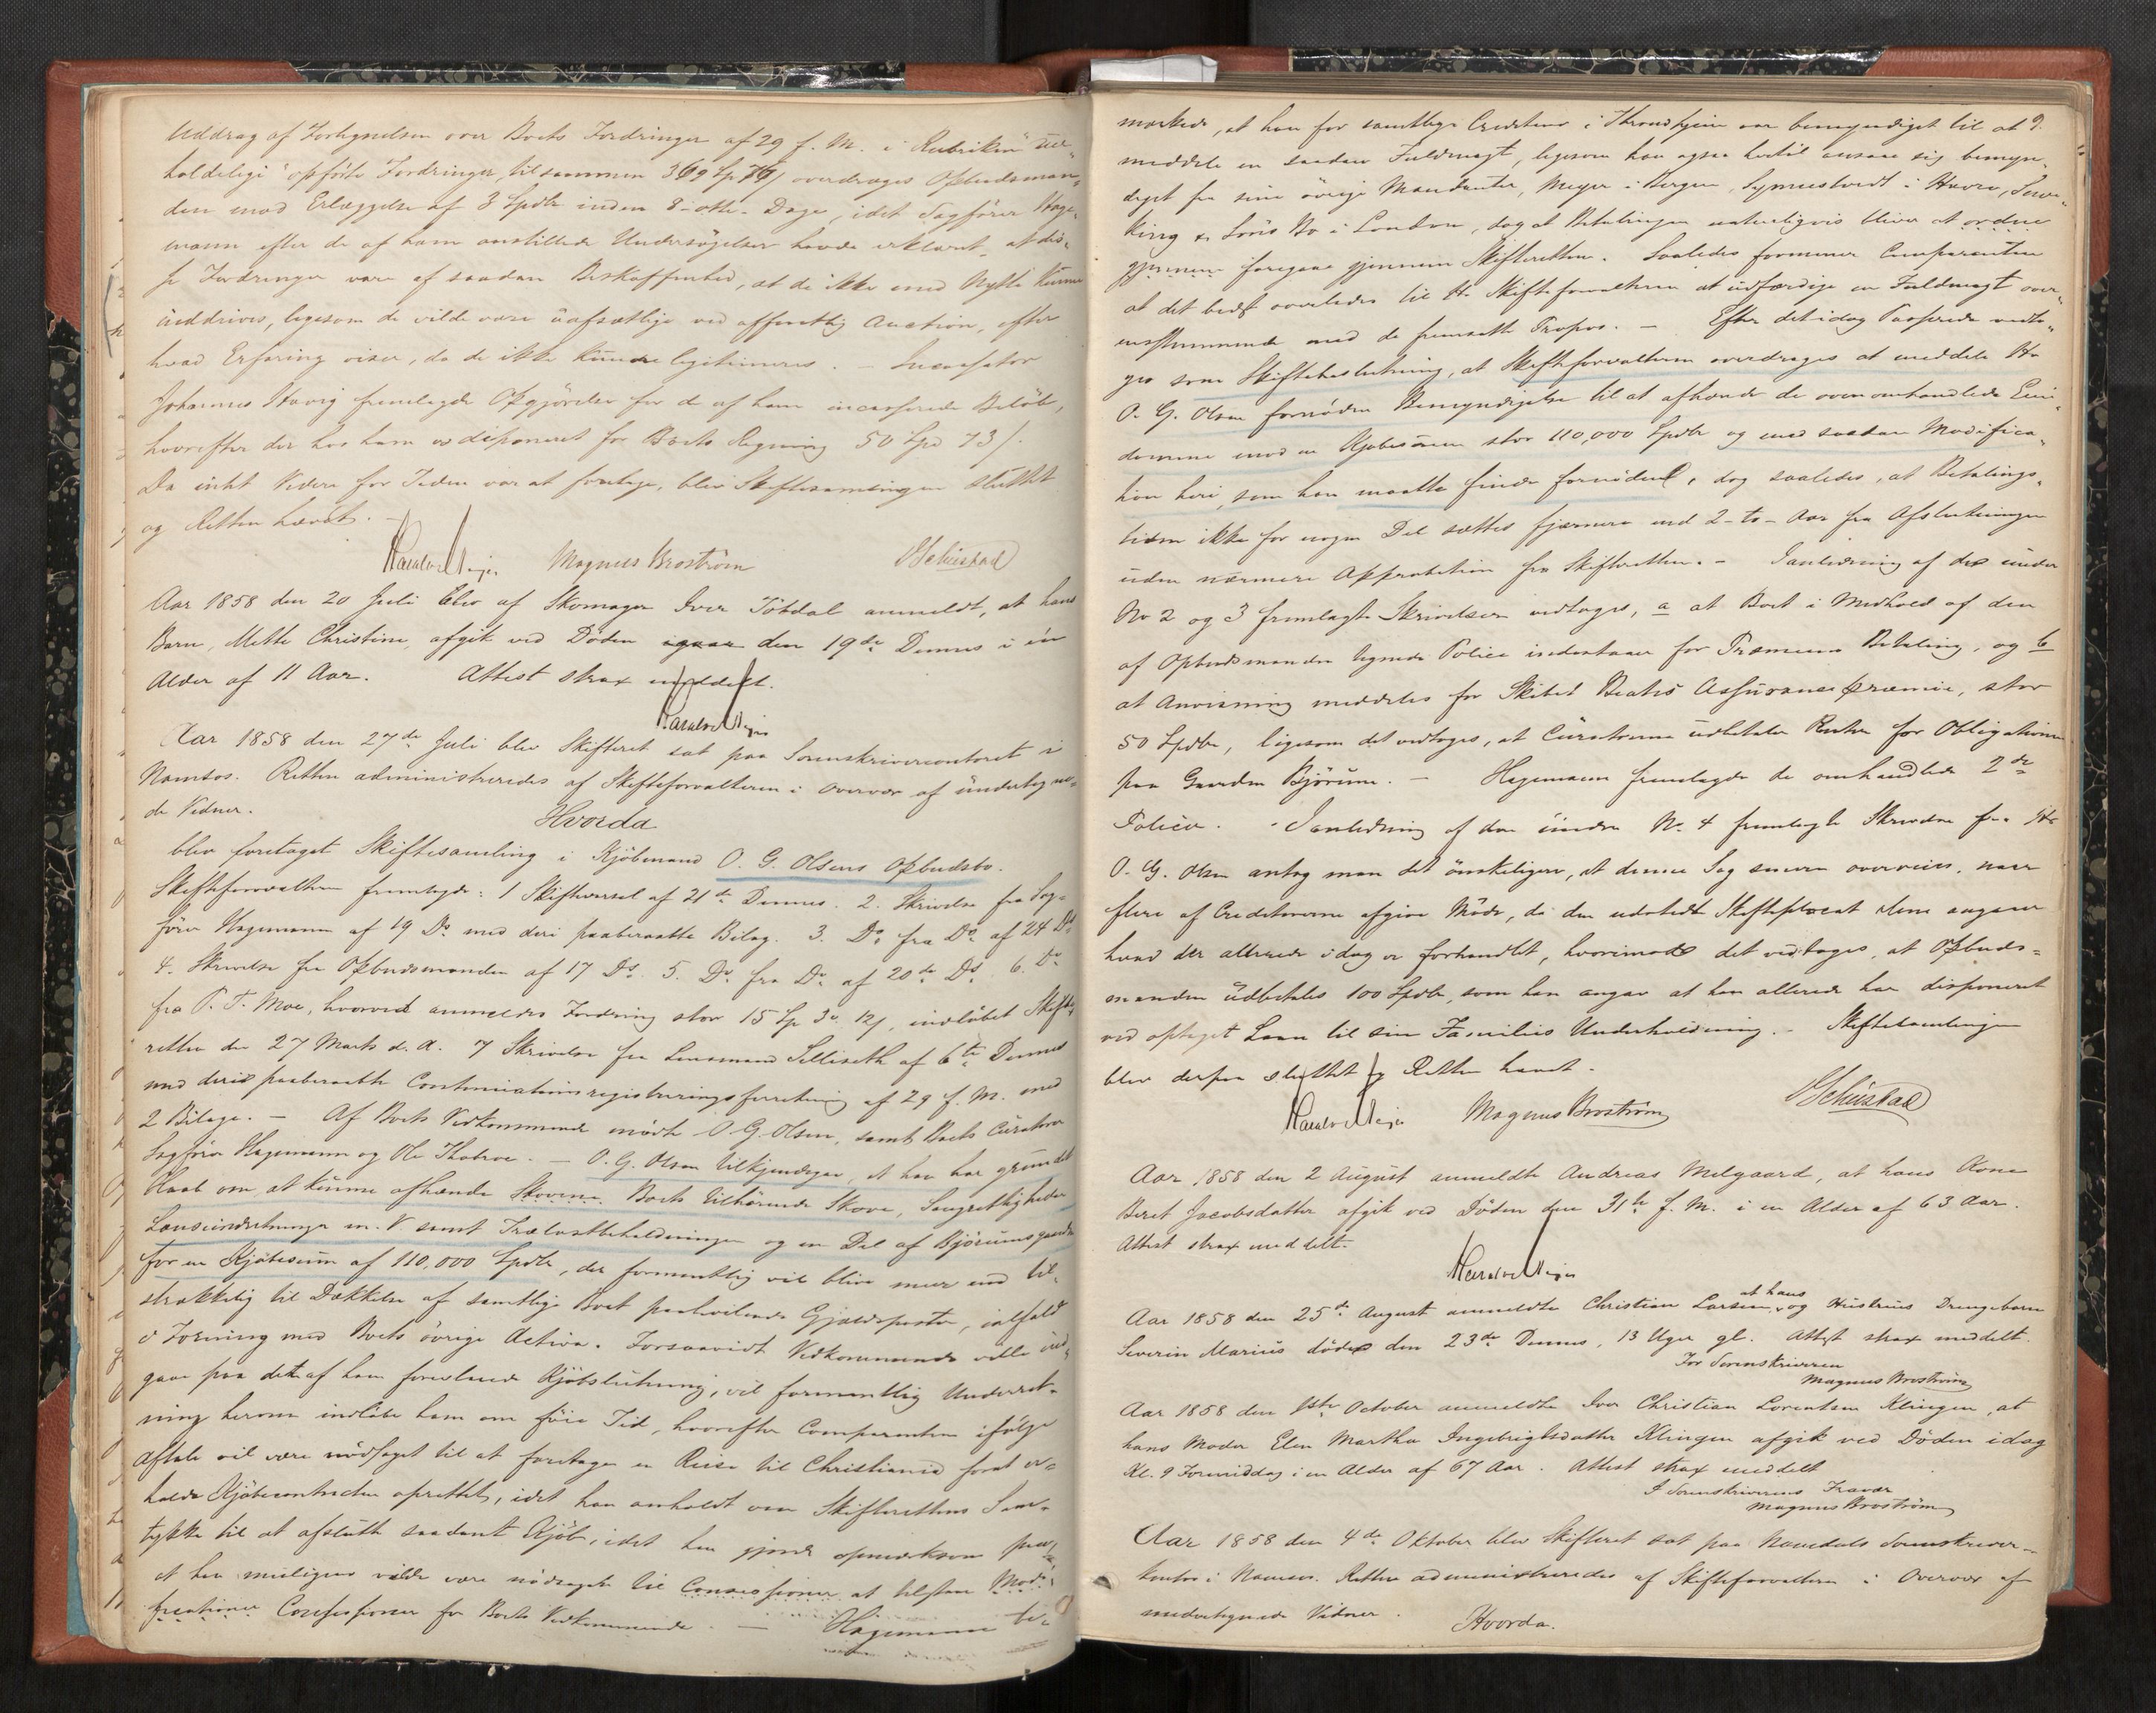 Uddrag af Fortegnelsen over Boets Fordringer af 29 f. M. i Rubriken "uer-
holdelige" opførte Fordringer, tilsammen 369 Sp 76/ overdrages Opbudsman-
den mod Erlæggelse af 3 Spdlr inden 8-otte-Dage, idet Sagfører Hage-
mann efter de af ham anstillede Undersøgelser havde erklæret, at dis-
se Fordringer vare af saadan Beskaffenhed, at de ikke med Nytte kunne
inddrives, ligesom de vilde være uafsætlige ved offentlig Auction, efter
hvad Erfaring viser, da de ikke kunne legitimeres. - Incassator
Johannes Havig fremlagde Opgjørelse for de af ham incasserede Beløb,
hvorefter der hos ham er disponeret for Boets Regning 50 Spd 73/.
Da intet Videre for Tiden var at foretage, blev Skiftesamlingen sluttet
og Retten hævet. -
Magnus Broström
Aar 1858 den 20 Juli blev af Skomager Iver Tötdal anmeldt, at hans
Barn, Mette Christine, afgik ved Døden igaar den 19de Dennes i en
Alder af 11 Aar. Attest strax meddelt.
Aar 1858 den 27de Juli blev Skifteret sat paa Sorenskrivercontoret i
Namsos. Retten administreredes af Skifteforvalteren i Overvær af undertegne-
de Vidner.
Hvorda
blev foretaget Skiftesamling i Kjøbmand O. G. Olsens Opbudsbo.
Skifteforvalteren fremlagde: 1 Skiftevarsel af 21de Dennes. 2. Skrivelse fra Sag-
fører Hagemann af 19 Ds med deri paaberaabte Bilag. 3. Do fra Do af 24 Ds
4. Skrivelse fra Opbudsmanden af 17 Ds. 5. Do fra Do af 20de Ds. 6. Do
fra P. T. Moe, hvorved anmeldes Fordring stor 15 Sp 3 12/, indløbet Skifte-
retten den 27 Marts d. A. 7 Skrivelse fra Lensmand Selliseth af 6te Dennes
med deri paaberaabte Continuationsregistreringsforretning af 29 f. M. med
2 Bilage. - Af Boets Vedkommende mødte O. G. Olsen, samt Boets Curatorer
Sagfører Hagemann og Ole Thobroe. - O. G. Olsen tilkjendegav, at han har grundet
Haab om at kunne afhænde Skovene Boets tilhørende Skove, Saugrettigheder
Landseindretninger m. V. samt Trælastbeholdninger og en Del af Bjørumsgaarden
for en Kjøbesum af 110,000 Spdlr, der formentlig vil blive mere end til-
strækkelig til Dækkelse af samtlige Boet paahvilende Gjældsposter, ialfald
i Forening med Boets øvrige Activa. Forsaavidt Vedkommende ville ind-
gaae paa det af ham foreslaaede Kjøbslutning, vil formentlig Underret-
ning herom indløbe ham om føie Tid, hvorefter Comparenten ifølge
Aftale vil være nødsaget til at foretage en Reise til Christiania forat er-
holde Kjøbecontracten oprettet, idet han anholdt om Skifterettens Sam-
tykke til at afslutte saadant Kjøb, idet han gjorde opmærksom paa,
at han muligens vilde være nødsaget til Concessioner at tilstaae Modi-
ficationer Concessioner for Boets Vedkommende. - Hagemann be-
9.
mærkede, at han for samtlige Creditorer i Throndhjem var bemyndiget til at
meddele en saadan Fuldmagt, ligesom han ogsaa hertil ansaae sig bemyn-
diget fra sine øvrige Mandanter, Meyer i Bergen, i Havre,
King & Sons Bo i London, dog at Betalingen naturligvis bliver at ordne
gjennem foregaae gjennem Skifteretten. Saaledes formener Comparenten
at det bedst overlades til Hr Skifteforvalteren at udfærdige en Fuldmagt over-
ensstemmende med de fremsatte Propos. - Efter det idag Passerede vedto-
ges som Skiftebeslutning, at Skifteforvalteren overdrages at meddele Hr
O. G. Olsen fornøden Bemyndigelse til at afhænde de ovenomhandlede Eien-
domme mod en Kjøbesum stor 110,000 Spdlr og med saadan Modifica-
tion heri, som han maatte finde fornøden, dog saaledes, at Betalings-
tiden ikke for nogen Del sættes fjærnere end 2-to-Aar fra Afslutningen
uden nærmere Approbation fra Skifteretten. - I anledning af de under
No 2 og 3 fremlagte Skrivelser vedtoges, a at Boet i Medhold af den
af Opbudsmanden tegnede Police indestaaer for Præmiens Betaling, og b
at Anvisning meddeles for Skibet Beates Assurancepræmie, stor
50 Spdlr, ligesom det vedtoges, at Curatorerne udbetaler Renter for Obligationen
paa Gaarden Bjørum. - Hagemann fremlagde de omhandlede 2de
Policer. - I anledning af den under No. 4 fremlagte Skrivelse fra Hr
O. G. Olsen antog man det ønskeligere, at denne Sag senere overveies, naar
flere af Creditorerne afgive Møde, da den udstedte Skifteplacat alene angaaer
hvad der allerede idag er forhandlet, hvorimod det vedtoges, at Opbuds-
manden udbetales 100 Spdlr, som han angav at han allerede har disponeret
ved optaget Laan til sin Families Underholdning. - Skiftesamlingen
blev derpaa sluttet og Retten hævet.
Magnus Broström
Aar 1858 den 2 August anmeldte Andreas Melgaard, at hans Kone
Beret Jacobsdatter afgik ved Døden den 31te f. M. i en Alder af 63 Aar.
Attest strax meddelt.
Aar 1858 den 25de August anmeldte Christian Larsen, at hans og Hustrues Drengebarn
Severin Marius døde den 23de Dennes, 13 Uger gl. Attest strax meddelt.
For Sorenskriveren
Magnus Broström
Aar 1858 den 1ste October anmeldte Iver Christian Lorentsen Klingen, at
hans Moder Elen Martha Ingebrigtsdatter Klingen afgik ved Døden idag
Kl. 9 Formiddag i en Alder af 67 Aar. Attest strax meddelt
I Sorenskriverens Fravær
Magnus Broström
Aar 1858 den 4de Oktober blev Skifteret sat paa Namdals Sorenskriver-
kontor i Namsos. Retten administreredes af Skifteforvalteren i Overvær af
undertegnede Vidner.
Hvorda.